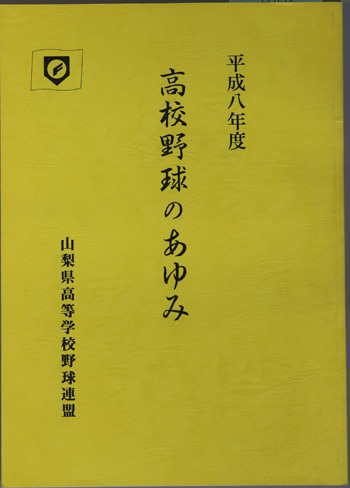 平成八年度
高校野球のあゆみ
山梨県高等学校野球連盟